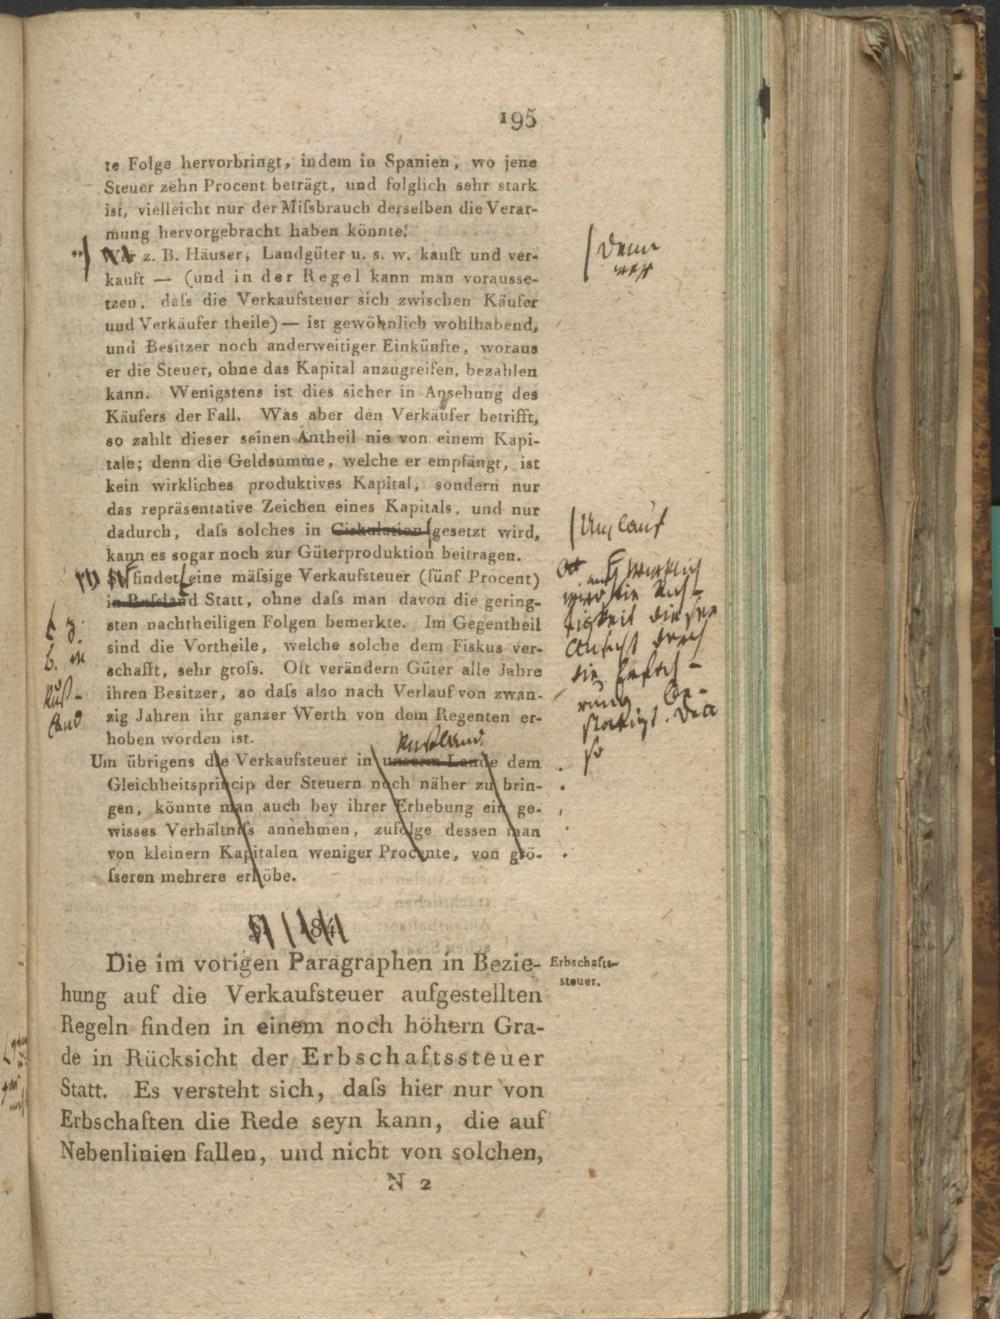 195
te Folge hervorbringt, indem in Spanien, wo jene
Steuer zehn Procent beträgt, und folglich sehr stark
ist, vielleicht nur der Miſsbrauch derselben die Verar-
mung hervorgebracht haben könnte.
Wer z. B. Häuser, Landgüter u. s. w. kauft und ver-
kauft — (und in der Regel kann man vorausse-
tzen, daſs die Verkaufsteuer sich zwischen Käufer
und Verkäufer theile) — ist gewöhnlich wohlhabend,
und Besitzer noch anderweitiger Einkünfte, woraus
er die Steuer, ohne das Kapital anzugreifen, bezahlen
kann. Wenigstens ist dies sicher in Ansehung des
Käufers der Fall. Was aber den Verkäufer betrifft,
so zahlt dieser seinen Antheil nie von einem Kapi-
tale; denn die Geldsumme, welche er empfängt, ist
kein wirkliches produktives Kapital, sondern nur
das repräsentative Zeichen eines Kapitals, und nur
dadurch, daſs solches in Cirkulation gesetzt wird,
kann es sogar noch zur Güterproduktion beitragen.
So findet eine mäſsige Verkaufsteuer (fünf Procent)
in Ruſsland Statt, ohne daſs man davon die gering-
sten nachtheiligen Folgen bemerkte. Im Gegentheil
sind die Vortheile, welche solche dem Fiskus ver-
schafft, sehr groſs. Oft verändern Güter alle Jahre
ihren Besitzer, so daſs also nach Verlauf von zwan-
zig Jahren ihr ganzer Werth von dem Regenten er-
hoben worden ist.
Um übrigens die Verkaufsteuer in unserm Lande dem
Gleichheitsprincip der Steuern noch näher zu brin-
gen, könnte man auch bey ihrer Erhebung ein ge-
wisses Verhältniſs annehmen, zufolge dessen man
von kleinern Kapitalen weniger Procente, von grö-
ſseren mehrere erhöbe.
Die im vorigen Paragraphen in Bezie-
hung auf die Verkaufsteuer aufgestellten
Regeln finden in einem noch höhern Gra-
de in Rücksicht der Erbschaftssteuer
Statt. Es versteht sich, daſs hier nur von
Erbschaften die Rede seyn kann, die auf
Nebenlinien fallen, und nicht von solchen,
N 2
Erbschafts-
steuer.
Denn
wer
Umlauf
z.
B. in
Ruß-
land
Rußland
wird die Rich-
tigkeit dieser
Ansicht durch
die Erfah-
rung be-
stätigt. Da
so